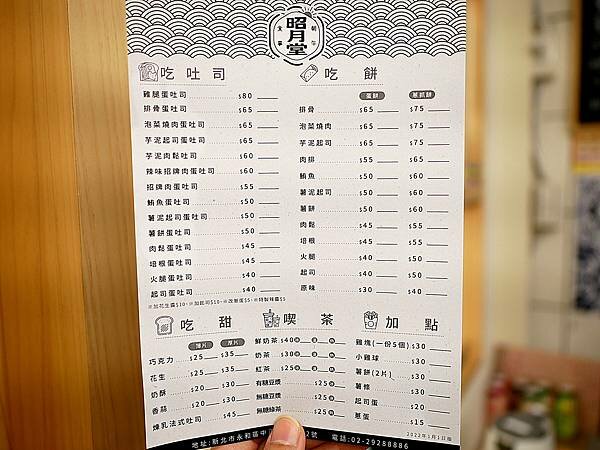 昭月堂
吃吐司
雞腿蛋吐司 $80
排骨蛋吐司 $65
泡菜燒肉蛋吐司 $65
芋泥起司蛋吐司 $65
芋泥肉鬆吐司 $60
辣味招牌肉蛋吐司 $60
招牌肉蛋吐司 $55
鮪魚蛋吐司 $50
薯泥起司蛋吐司 $50
薯餅蛋吐司 $50
肉鬆蛋吐司 $45
培根蛋吐司 $45
火腿蛋吐司 $40
起司蛋吐司 $40
※加花生醬$10、※加起司$10、※改蔥蛋$5、※特製辣醬$5
吃餅
蛋餅 蔥抓餅
排骨 $65 $75
泡菜燒肉 $65 $75
芋泥起司 $65 $75
肉排 $55 $65
鮪魚 $50 $60
薯泥起司 $50 $60
薯餅 $50 $60
肉鬆 $45 $55
培根 $45 $55
火腿 $40 $50
起司 $40 $50
原味 $30 $40
吃甜
薄片 厚片
巧克力 $25 $35
花生 $25 $35
奶酥 $20 $30
香蒜 $20 $30
煉乳法式吐司 $45
喫茶
鮮奶茶 $40
奶茶 $30
紅茶 $25
有糖豆漿 $25
無糖豆漿 $25
無糖綠茶 $25
加點
雞塊(一份5個) $30
小雞球 $30
薯餅(2片) $30
薯條 $30
起司蛋 $20
蔥蛋 $15
2022年1月1日版
地址:新北市永和區中 2號 電話:02-29288886